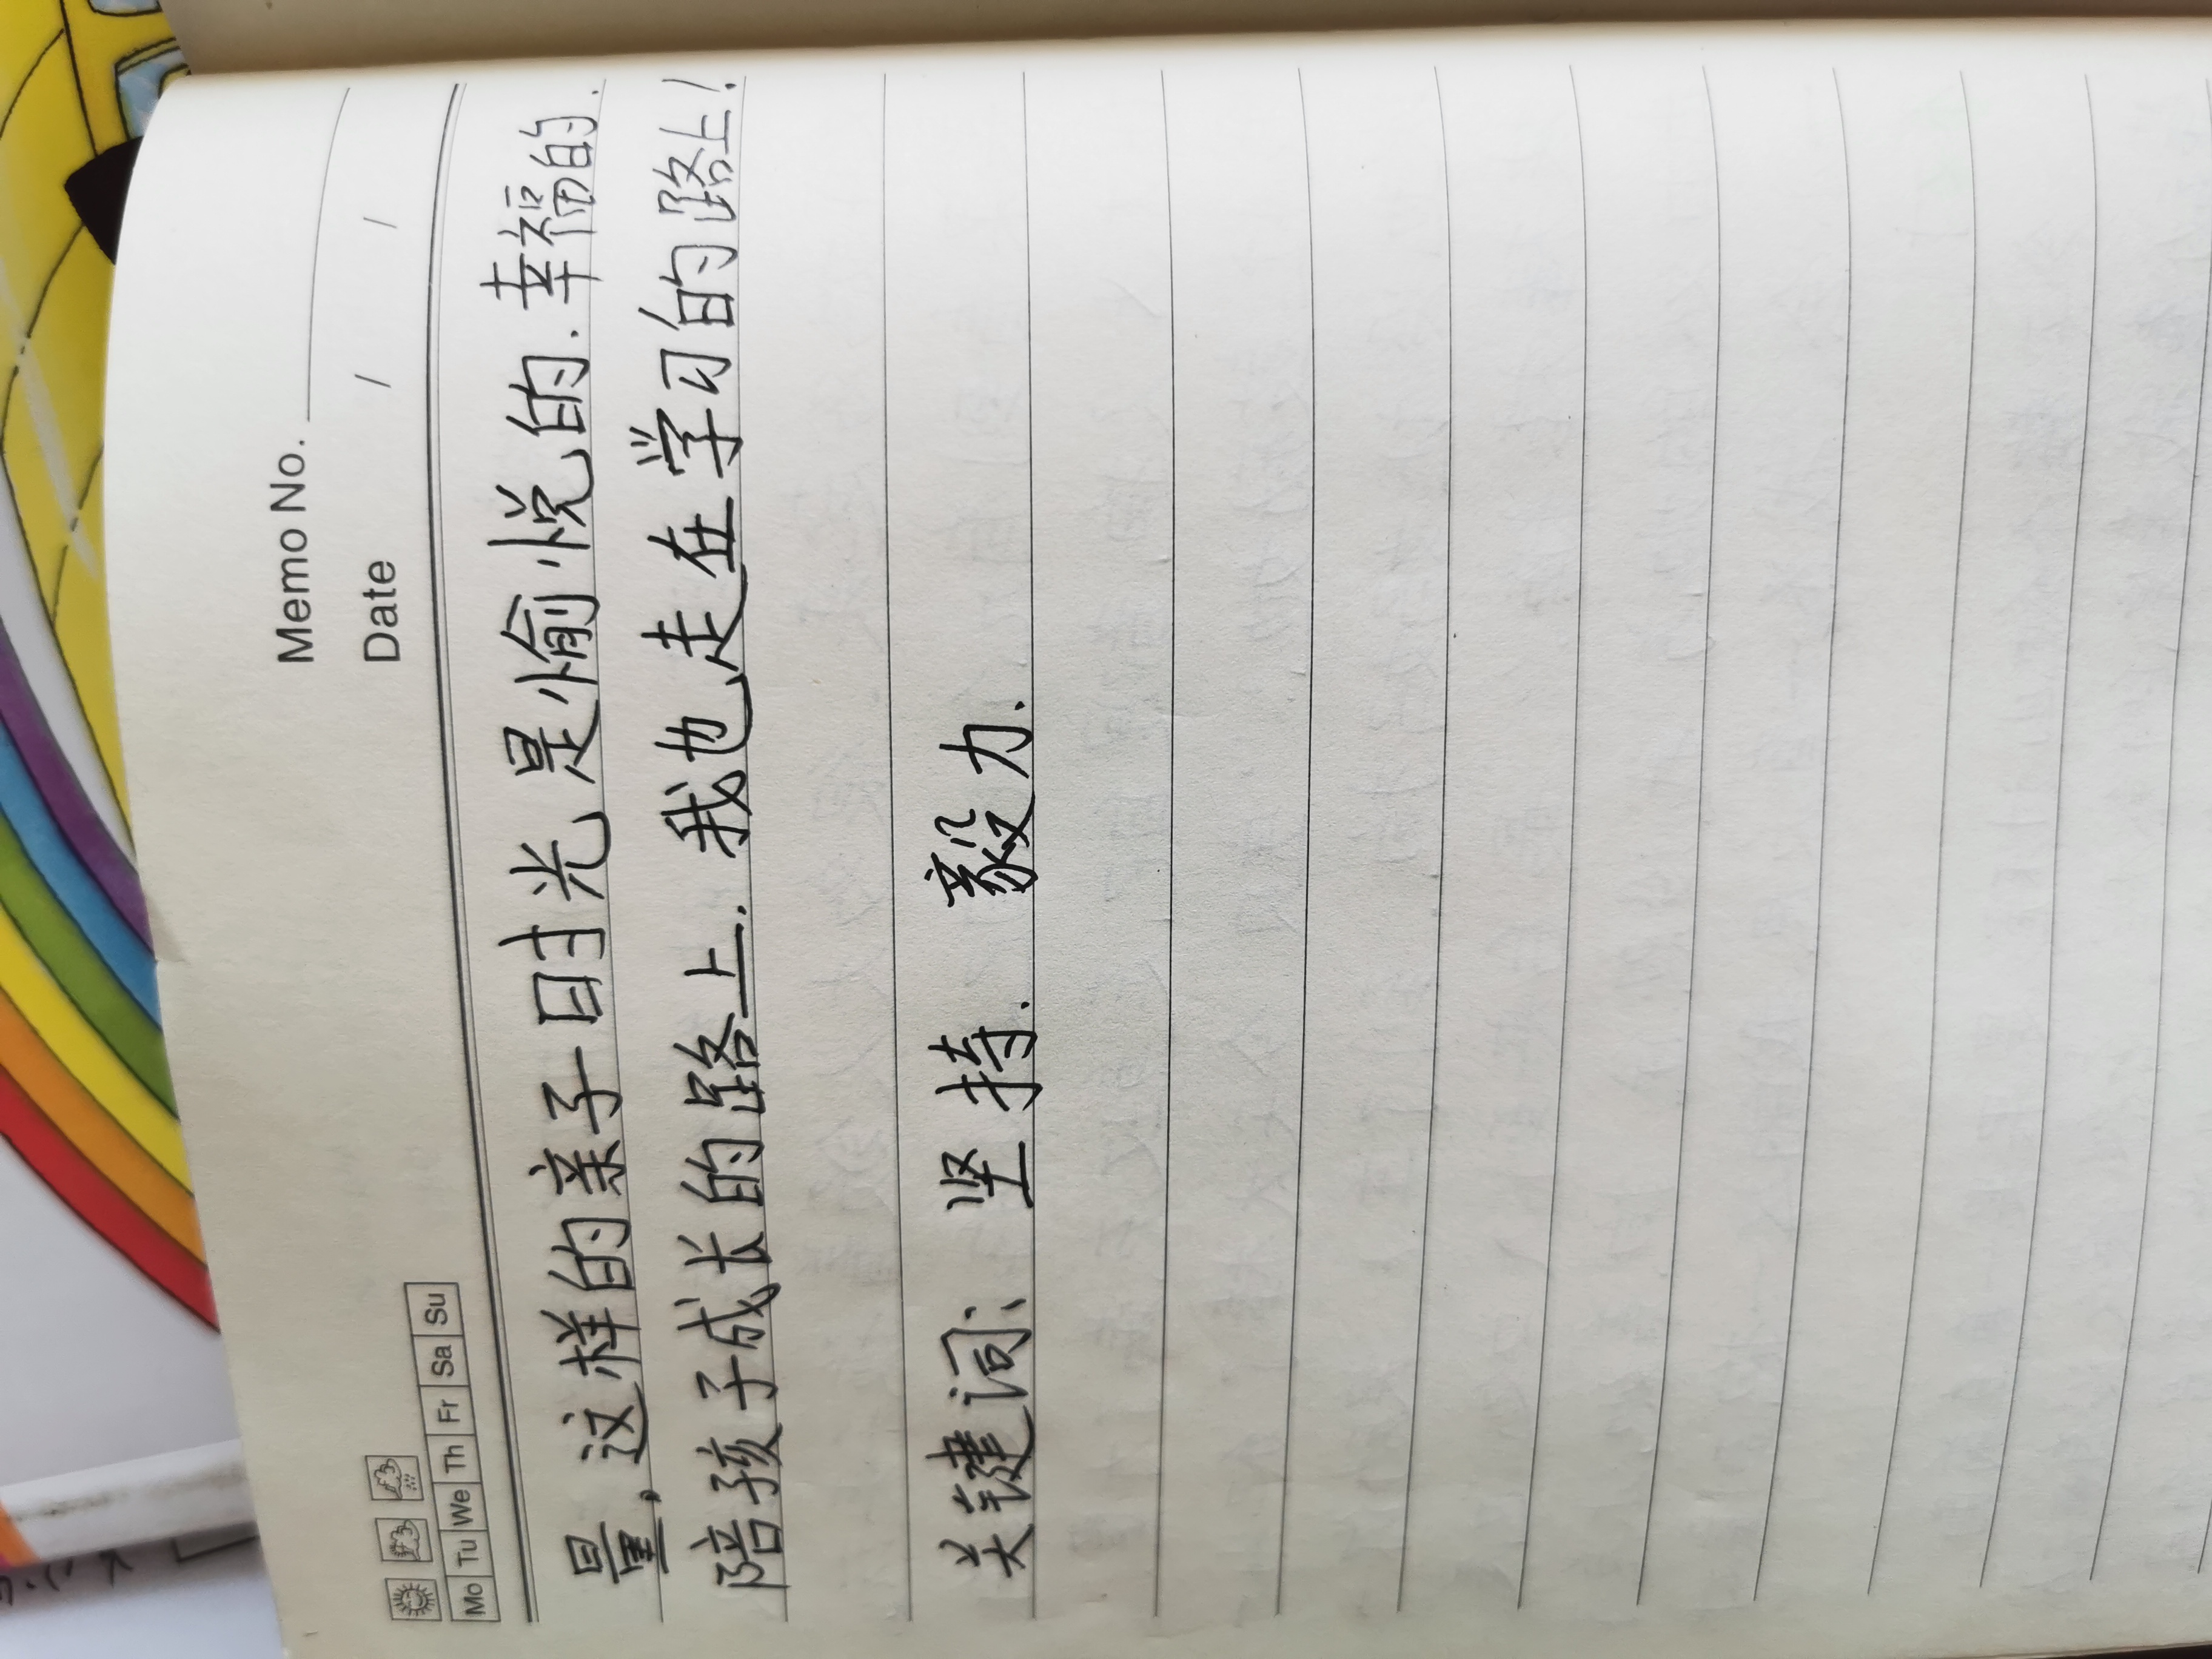 Memo No.
Mo Tu We Th Fr Sa Su
Date / /
量，这样的亲子时光是愉悦的.幸福的.
陪孩子成长的路上.我也走在学习的路上!
关键词: 坚持. 毅力.